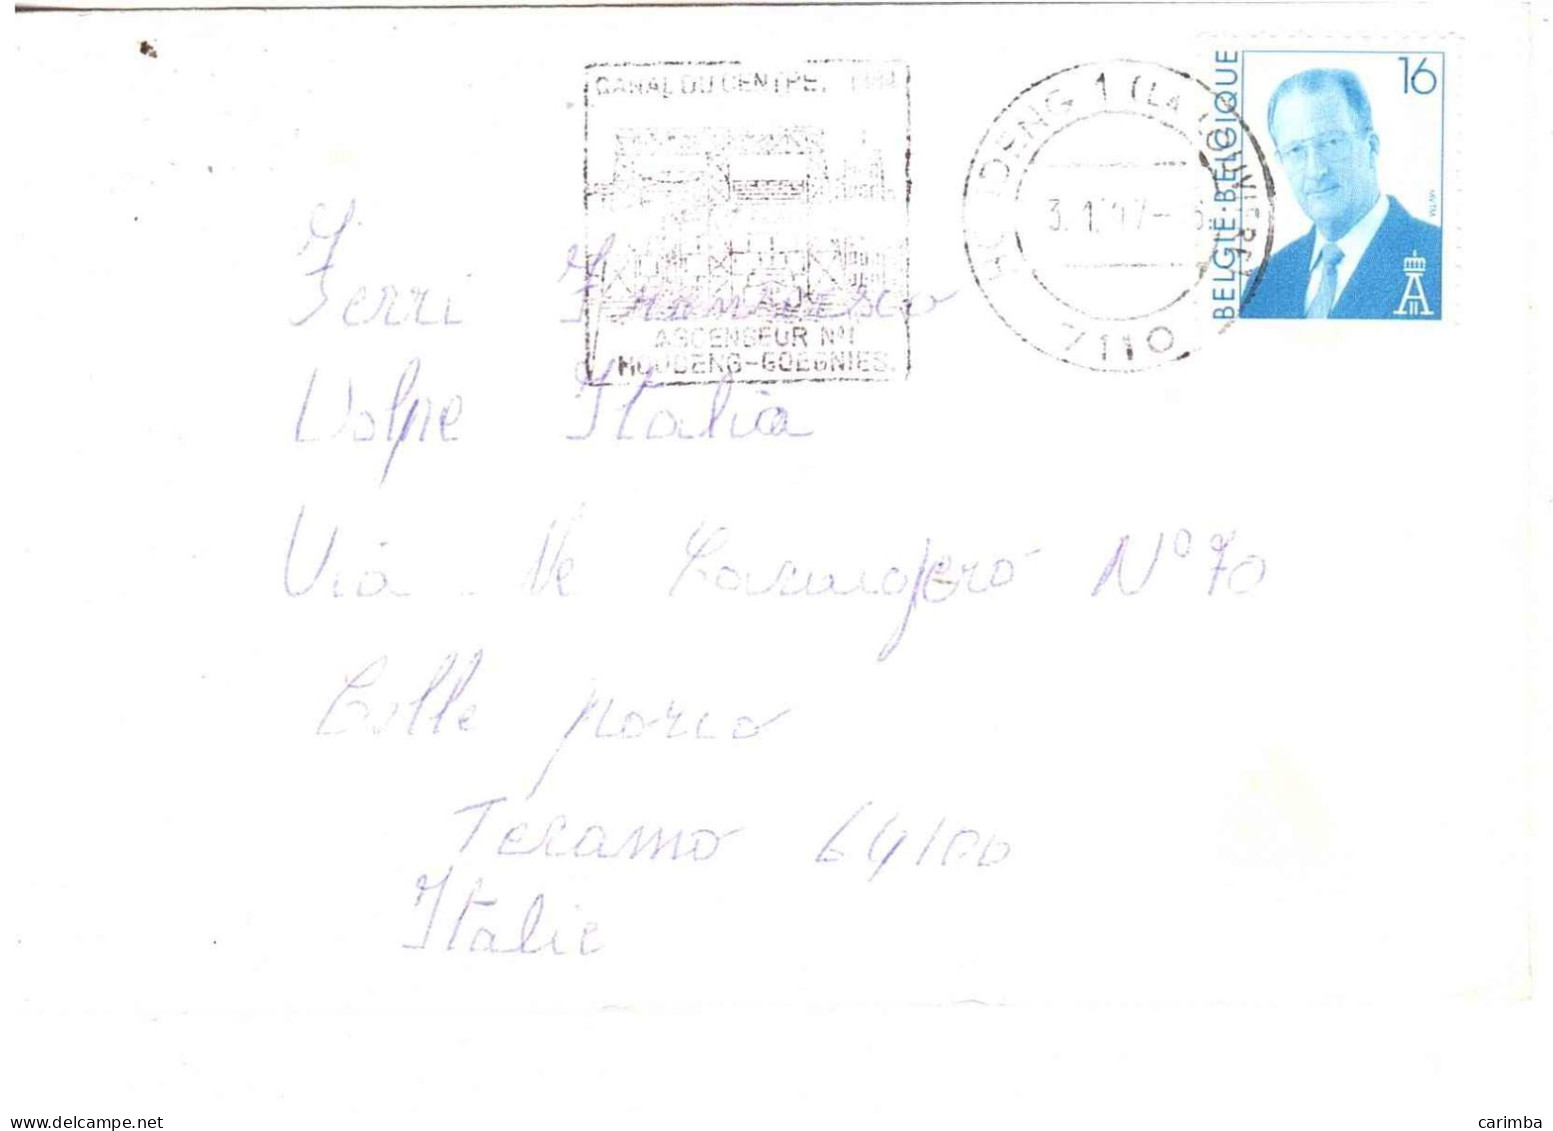 CANAL DU CENTRE.
ASCENSEUR N°1
HOUDENG-GOEGNIES.
HOUDENG 1 (LA LOUVIERE)
7110
BELGIË·BELGIQUE
16
MVTM
Ferri Francesco
Volpe Italia
Via
N° 70
Colle porco
Teramo 64100
Italie
www.delcampe.net
carimba